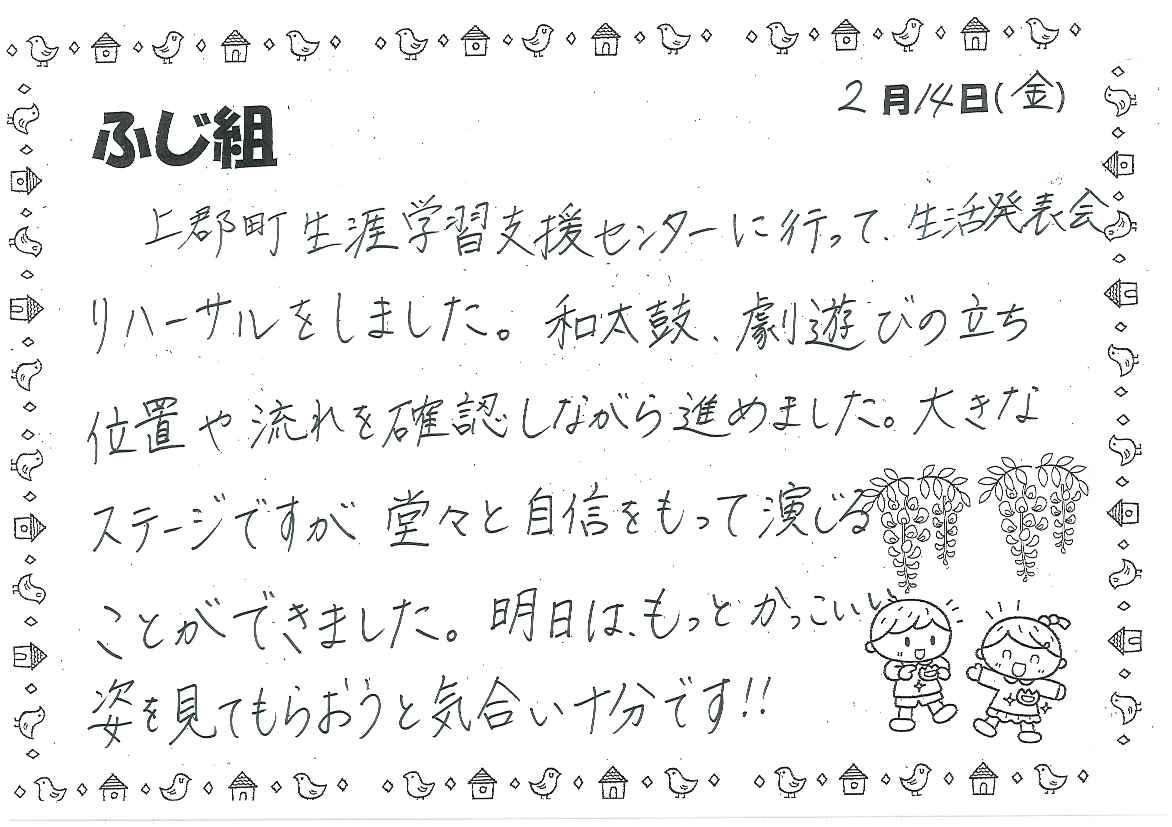 2月14日(金)
ふじ組
上郡町生涯学習支援センターに行って、生活発表会
リハーサルをしました。和太鼓、劇遊びの立ち
位置や流れを確認しながら進めました。大きな
ステージですが堂々と自信をもって演じる
ことができました。明日は、もっとかっこいい
姿を見てもらおうと気合い十分です!!